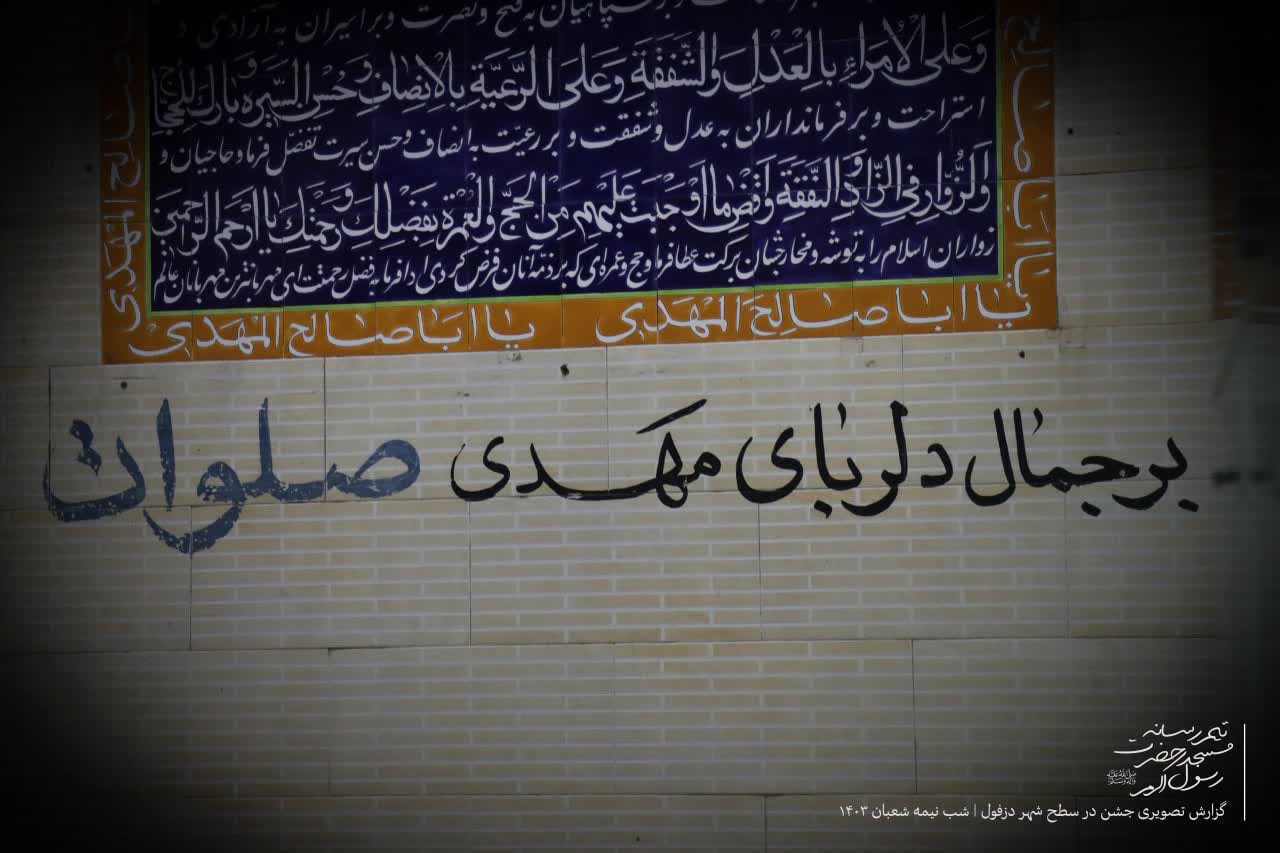 سپاهیان به فتح و نصرت و بر اسیران به آزادی و
وَعَلَى الْأُمَرَاءِ بِالْعَدْلِ وَالشَّفَقَةِ وَعَلَى الرَّعِيَّةِ بِالْإِنْصَافِ وَحُسْنِ السِّيرَةِ وَبَارِكْ لِلْحُجَّاجِ
استراحت و بر فرمانداران به عدل و شفقت و بر رعیّت به انصاف و حسن سیرت تفضّل فرما و حاجیان و
وَالزُّوَّارِ فِي الزَّادِ وَالنَّفَقَةِ وَاقْضِ مَا أَوْجَبْتَ عَلَيْهِمْ مِنَ الْحَجِّ وَالْعُمْرَةِ بِفَضْلِكَ وَرَحْمَتِكَ يَا أَرْحَمَ الرَّاحِمِينَ
زواران اسلام را به توشه و مخارجشان برکت عطا فرما و حج و عمره‌ای که بر ذمّه آنان فرض کردی ادا فرما به فضل و رحمتت ای مهربانترین مهربانان عالم
یا ابا صالح المهدی
یا ابا صالح المهدی
یا ابا صالح
صالح المهدی
بر جمال دلربای مهدی صلوات
تیم رسانه
مسجد حضرت
رسول اکرم
گزارش تصویری جشن در سطح شهر دزفول | شب نیمه شعبان ۱۴۰۳